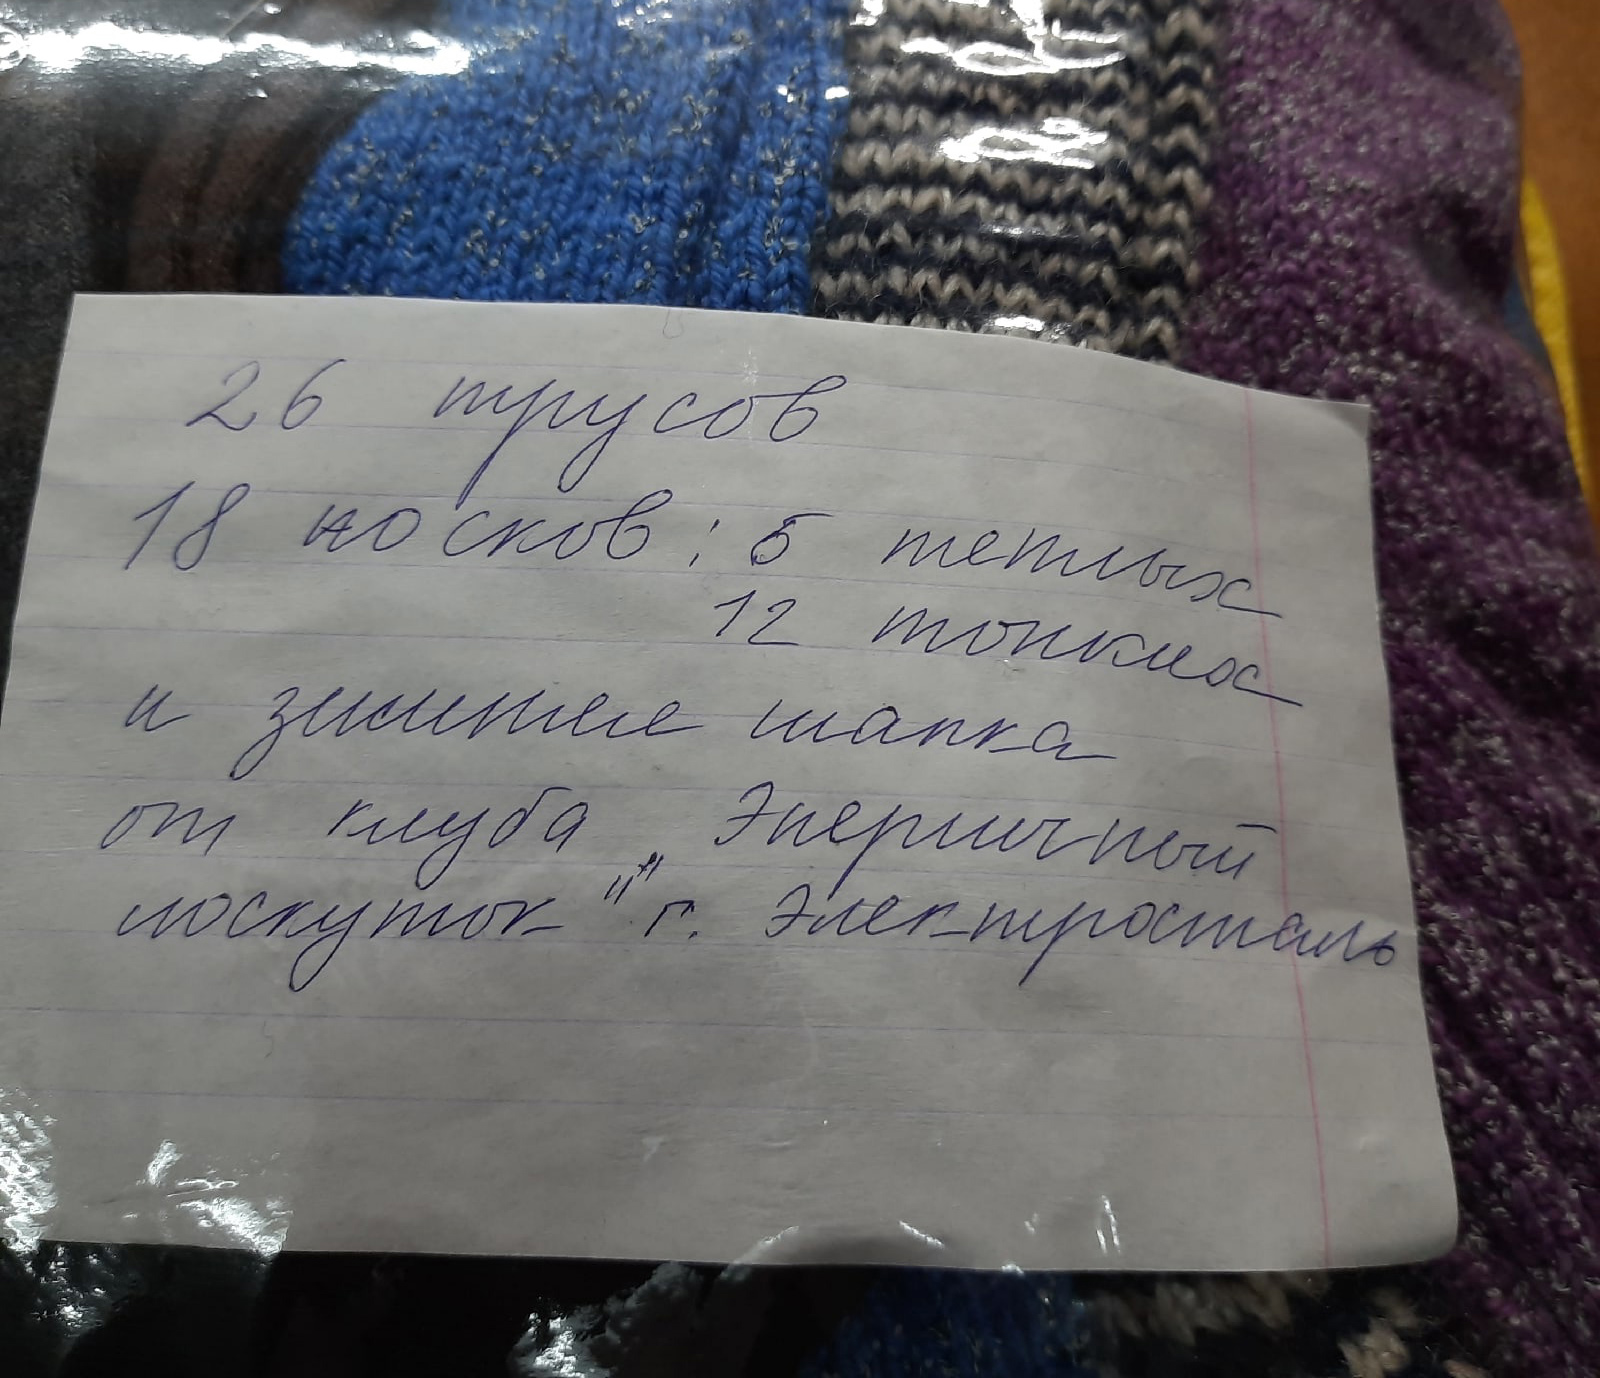 26 трусов
18 носков: 5 теплых
12 тонких
и зимнее шапка
от клуба „Энергичный
лоскуток" г. Электросталь